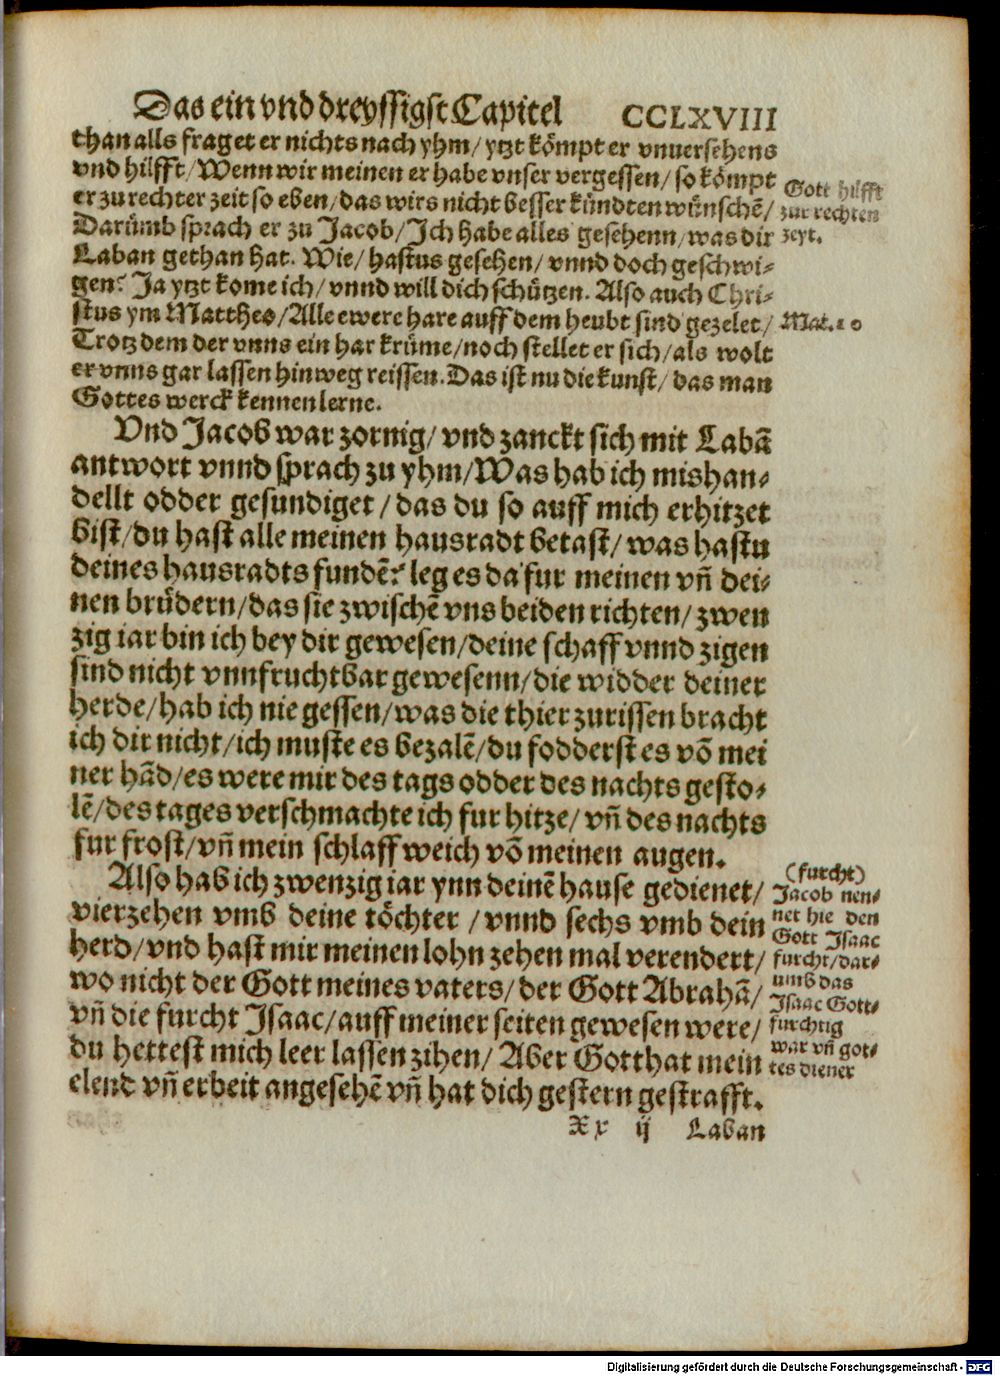 Das ein vnd dreyssigst Capitel CCLXVIII
than alls fraget er nichts nach yhm/ ytzt kömpt er vnuersehens
vnd hilfft/ Wenn wir meinen er habe vnser vergessen/ so kömpt
er zu rechter zeit so eben/ das wirs nicht besser kündten wünschē/
Darümb sprach er zu Jacob/ Ich habe alles gesehenn/ was dir
Laban gethan hat. Wie/ hastus gesehen/ vnnd doch geschwi-
gen? Ja ytzt kome ich/ vnnd will dich schützen. Also auch Chri-
stus ym Mattheo/ Alle ewere hare auff dem heubt sind gezelet/
Trotz dem der vnns ein har krüme/ noch stellet er sich/ als wolt
er vnns gar lassen hinweg reissen. Das ist nu die kunst/ das man
Gottes werck kennen lerne.
Gott hilfft
zur rechten
zeyt.
Mat. 10
Vnd Jacob war zornig/ vnd zanckt sich mit Labā
antwort vnnd sprach zu yhm/ Was hab ich mishan-
dellt odder gesundiget/ das du so auff mich erhitzet
bist/ du hast alle meinen hausradt betast/ was hastu
deines hausradts fundē? leg es da fur meinen vñ dei-
nen brüdern/ das sie zwischē vns beiden richten/ zwen
zig iar bin ich bey dir gewesen/ deine schaff vnnd zigen
sind nicht vnnfruchtbar gewesenn/ die widder deiner
herde/ hab ich nie gessen/ was die thier zurissen bracht
ich dir nicht/ ich muste es bezalē/ du fodderst es vō mei
ner hād/ es were mir des tags odder des nachts gesto-
lē/ des tages verschmachte ich fur hitze/ vñ des nachts
fur frost/ vñ mein schlaff weich vō meinen augen.
Also hab ich zwenzig iar ynn deinē hause gedienet/
vierzehen vmb deine töchter/ vnnd sechs vmb dein
herd/ vnd hast mir meinen lohn zehen mal verendert/
wo nicht der Gott meines vaters/ der Gott Abrahā/
vñ die furcht Isaac/ auff meiner seiten gewesen were/
du hettest mich leer lassen zihen/ Aber Gott hat mein
elend vñ erbeit angesehē vñ hat dich gestern gestrafft.
(furcht)
Jacob nen-
net hie den
Gott Isaac
furcht/ dar-
umb das
Isaac Gott-
furchtig
war vñ got-
tes diener
Xx ij Laban
Digitalisierung gefördert durch die Deutsche Forschungsgemeinschaft - DFG